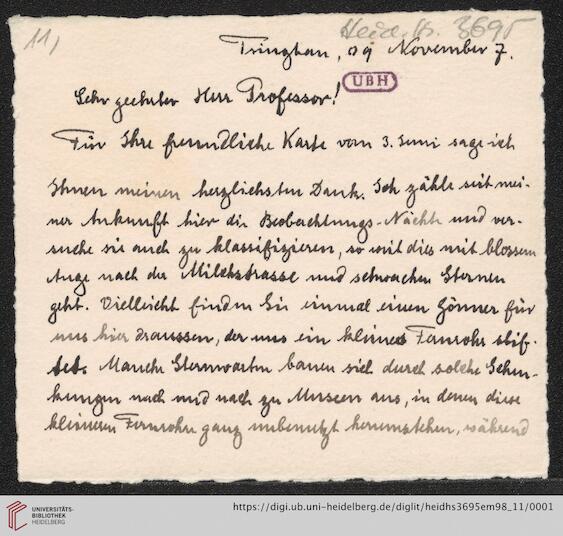 11)
Heid. Hs. 3695
Tsingtau, 09 November 7.
UBH
Sehr geehrter Herr Professor!
Für Ihre freundliche Karte vom 3. Juni sage ich
Ihnen meinen herzlichsten Dank. Ich zähle seit mei-
ner Ankunft hier die Beobachtungs-Nächte und ver-
suche sie auch zu klassifizieren, so weit dies mit blossem
Auge nach der Milchstrasse und schwachen Sternen
geht. Vielleicht finden Sie einmal einen Gönner für
uns hier draussen, der uns ein kleines Fernrohr stif-
tet. Manche Sternwarten bauen sich durch solche Schen-
kungen nach und nach zu Museen aus, in denen diese
kleineren Fernrohre ganz unbenutzt herumstehen, während
UNIVERSITÄTS-
BIBLIOTHEK
HEIDELBERG
https://digi.ub.uni-heidelberg.de/diglit/heidhs3695em98_11/0001